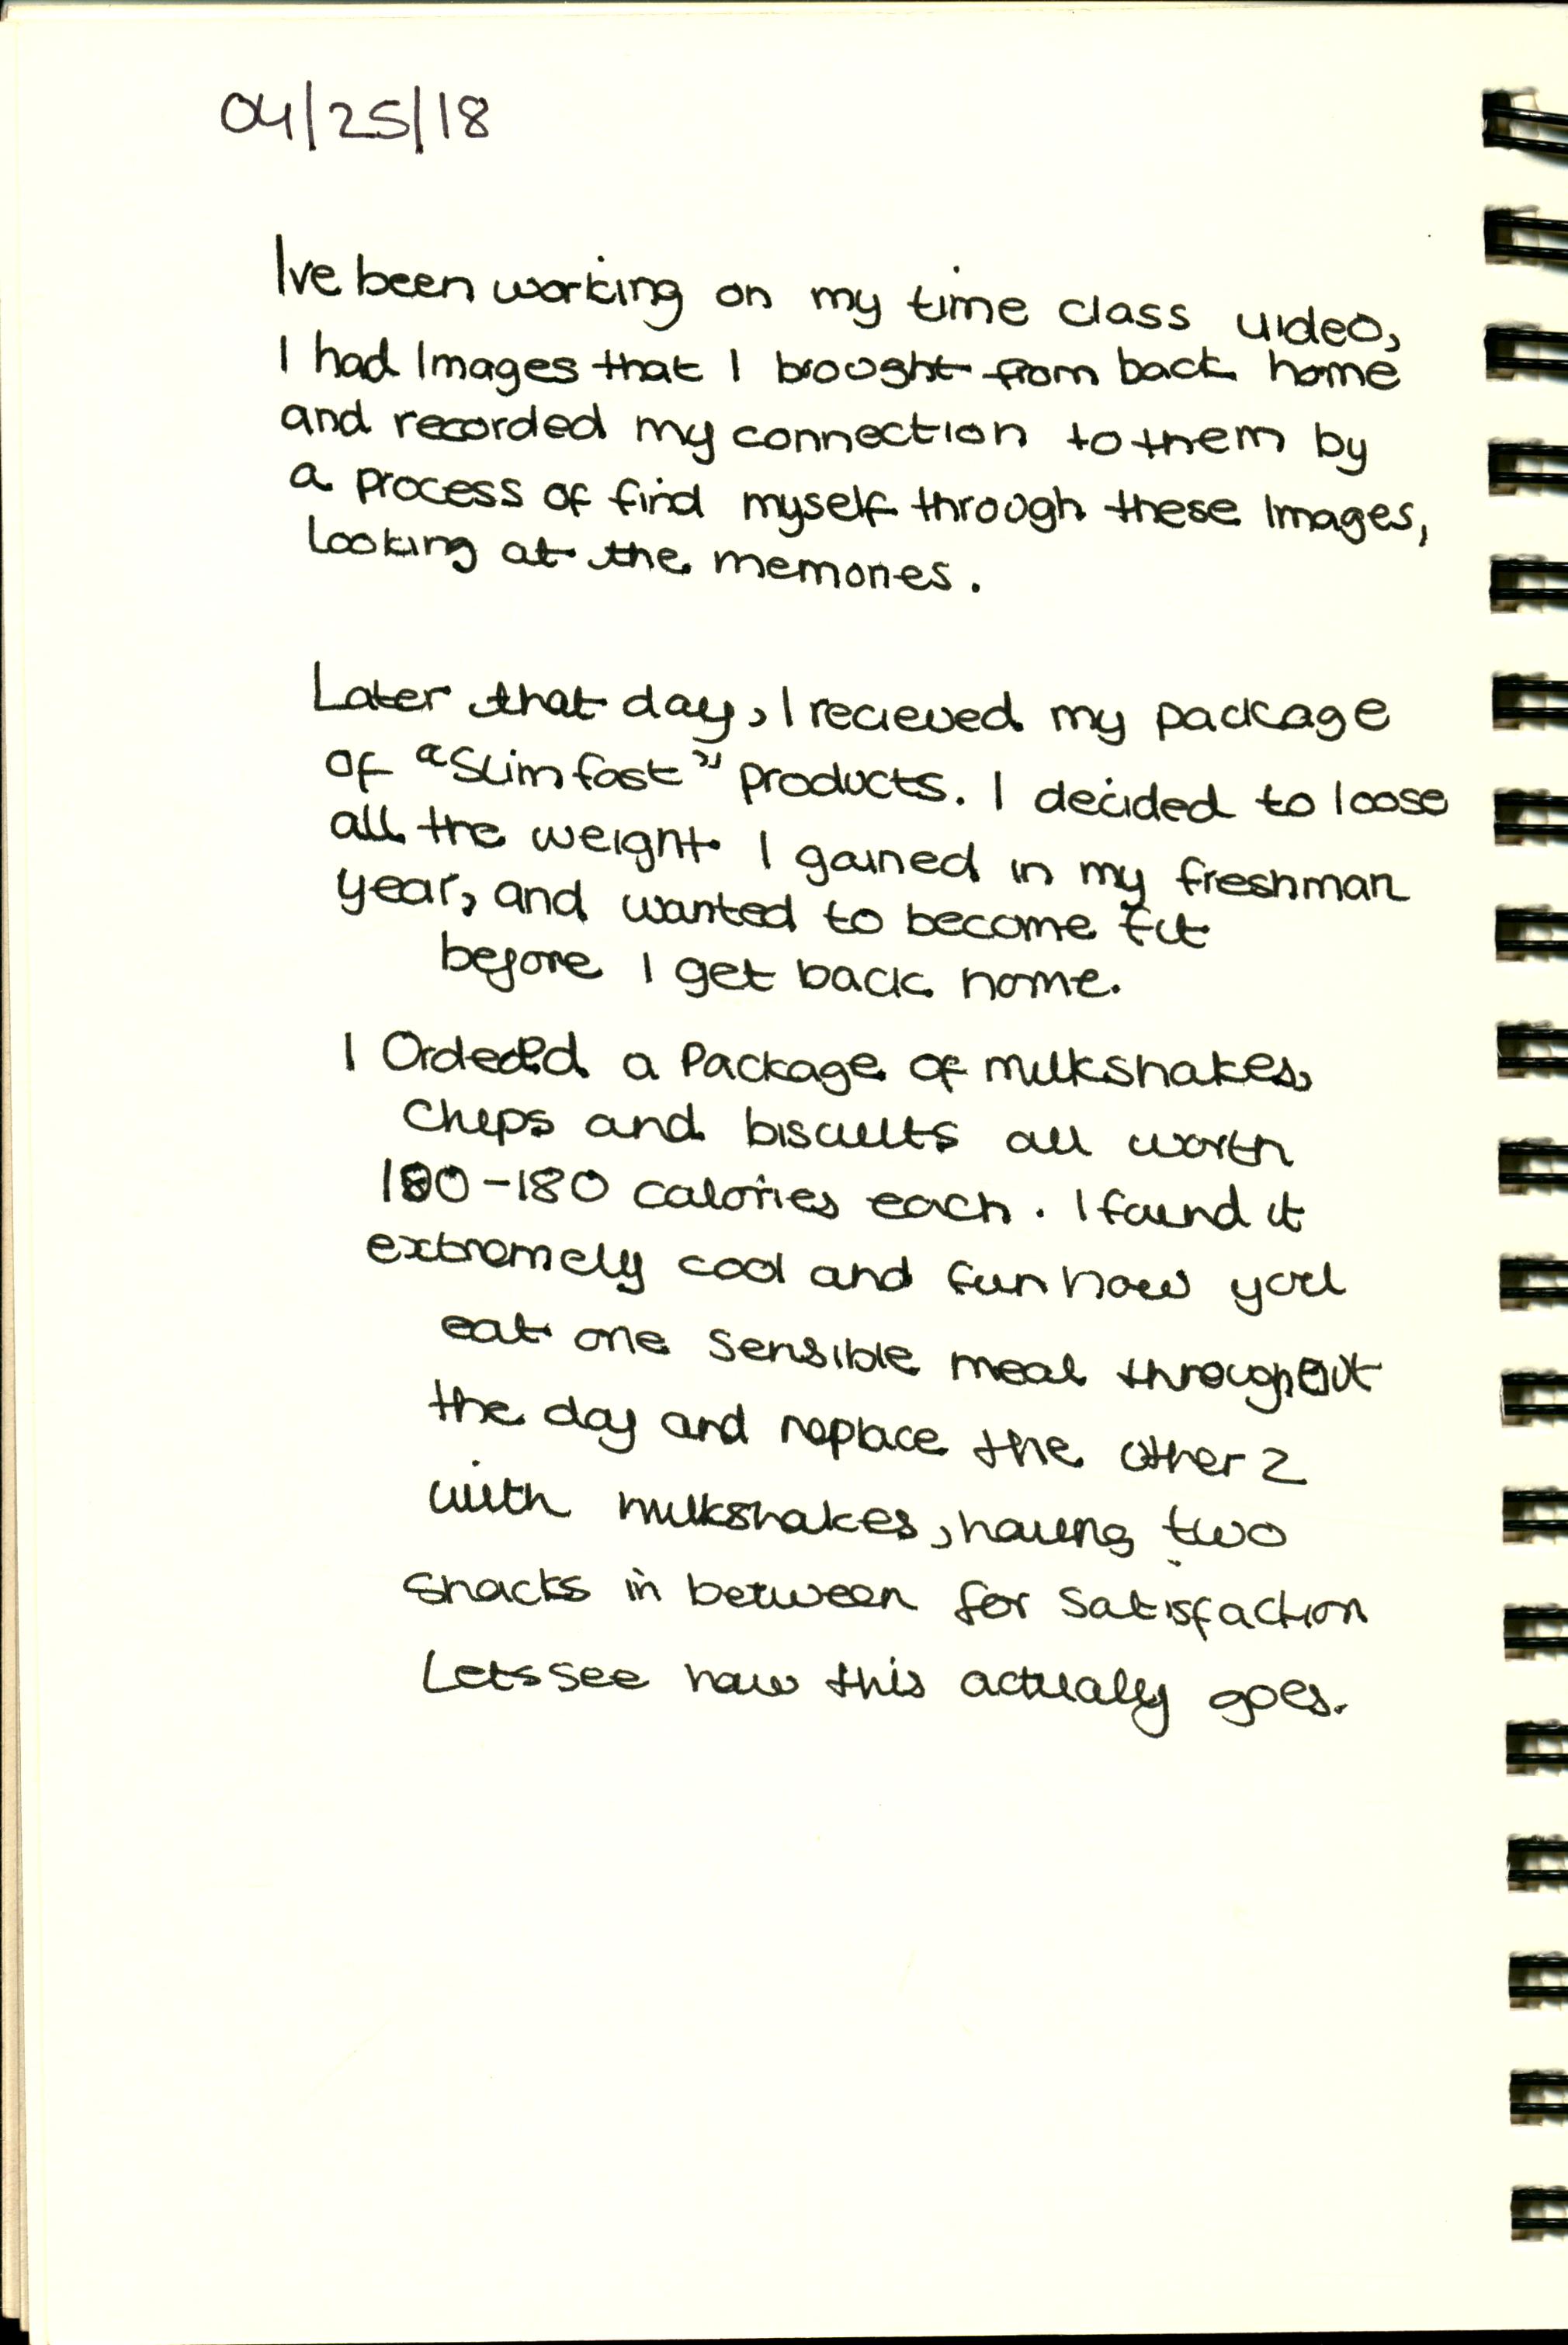 04/25/18
Ive been working on my time class video,
I had Images that I brought from back home
and recorded my connection to them by
a process of find myself through these Images,
Looking at the memories.
Later that day, I recieved my package
of "Slimfast" products. I decided to loose
all the weight I gained in my freshman
year, and wanted to become fit
before I get back home.
I Ordeded a Package of milkshakes,
Chips and biscuits all worth
100-180 calories each. I found it
extremely cool and fun how you
eat one sensible meal throughout
the day and replace the other 2
with milkshakes, having two
snacks in between for satisfaction
Lets see how this actually goes.